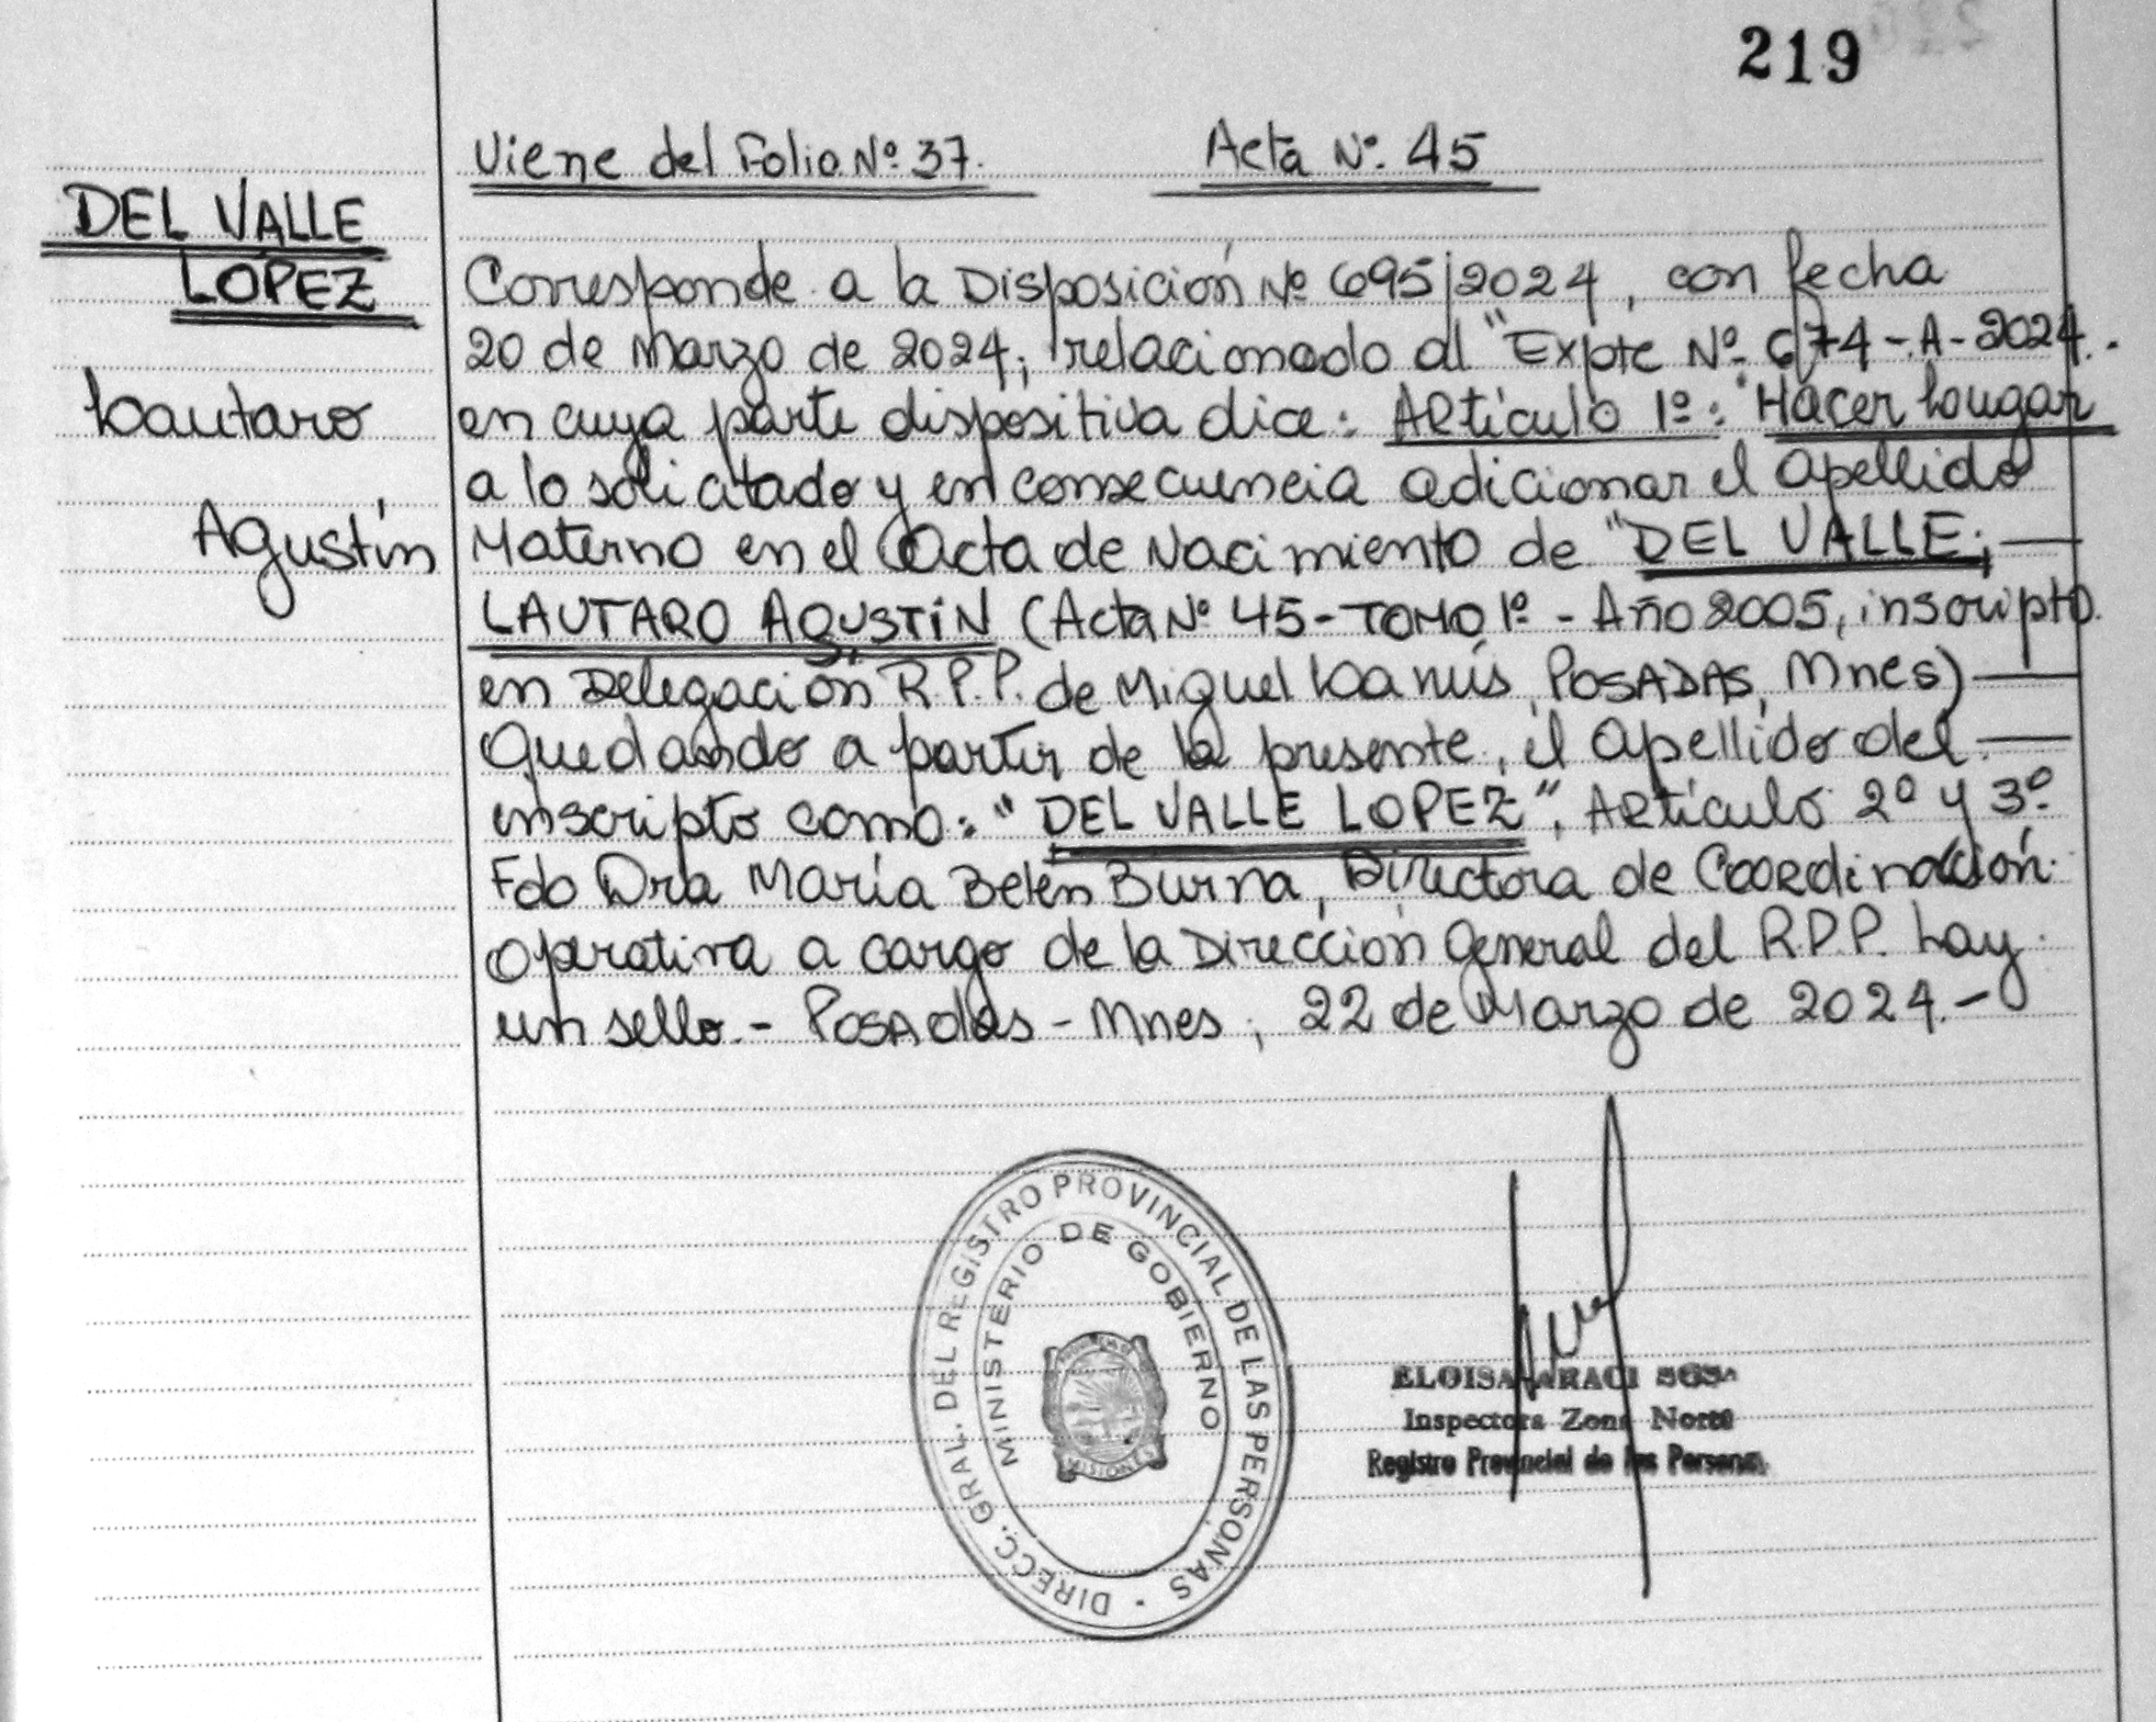 219
Viene del Folio Nº 37. Acta Nº 45
DEL VALLE
LOPEZ
Lautaro
Agustín
Corresponde a la Disposición Nº 695/2024, con fecha
20 de Marzo de 2024; relacionado al "Expte Nº 674-A-2024.-
en cuya parte dispositiva dice: Artículo 1º: "Hacer Lugar
a lo solicitado y en consecuencia adicionar el Apellido
Materno en el Acta de Nacimiento de "DEL VALLE;
LAUTARO AGUSTÍN (Acta Nº 45-TOMO 1º - Año 2005, inscripto
en Delegación R.P.P. de Miguel Lanús, POSADAS, Mnes)
Quedando a partir de la presente, el Apellido del
inscripto como: "DEL VALLE LOPEZ", Artículo 2º y 3º
Fdo Dra María Belén Burna, Directora de Coordinación
Operativa a cargo de la Dirección General del R.P.P. hay
un sello.- Posadas - Mnes; 22 de Marzo de 2024.-
DIRECC. GRAL. DEL REGISTRO PROVINCIAL DE LAS PERSONAS
MINISTERIO DE GOBIERNO
MISIONES
ELOISA
Inspectora Zona Norte
Registro Provincial de las Personas